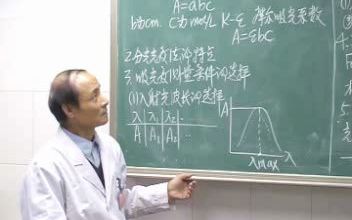 A=abc
b:cm. C:mol/L K-ε 摩尔吸光系数
A=εbc
2.分光光度法的特点
3.吸光度测量条件的选择
(1)入射光波长的选择
λ λ₁ λ₂ ...
A A₁ A₂ ...
A
λmax λ